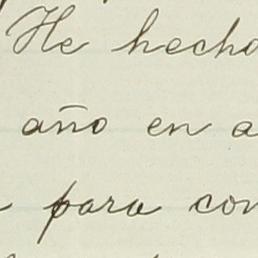 He hecho
año en a
para con